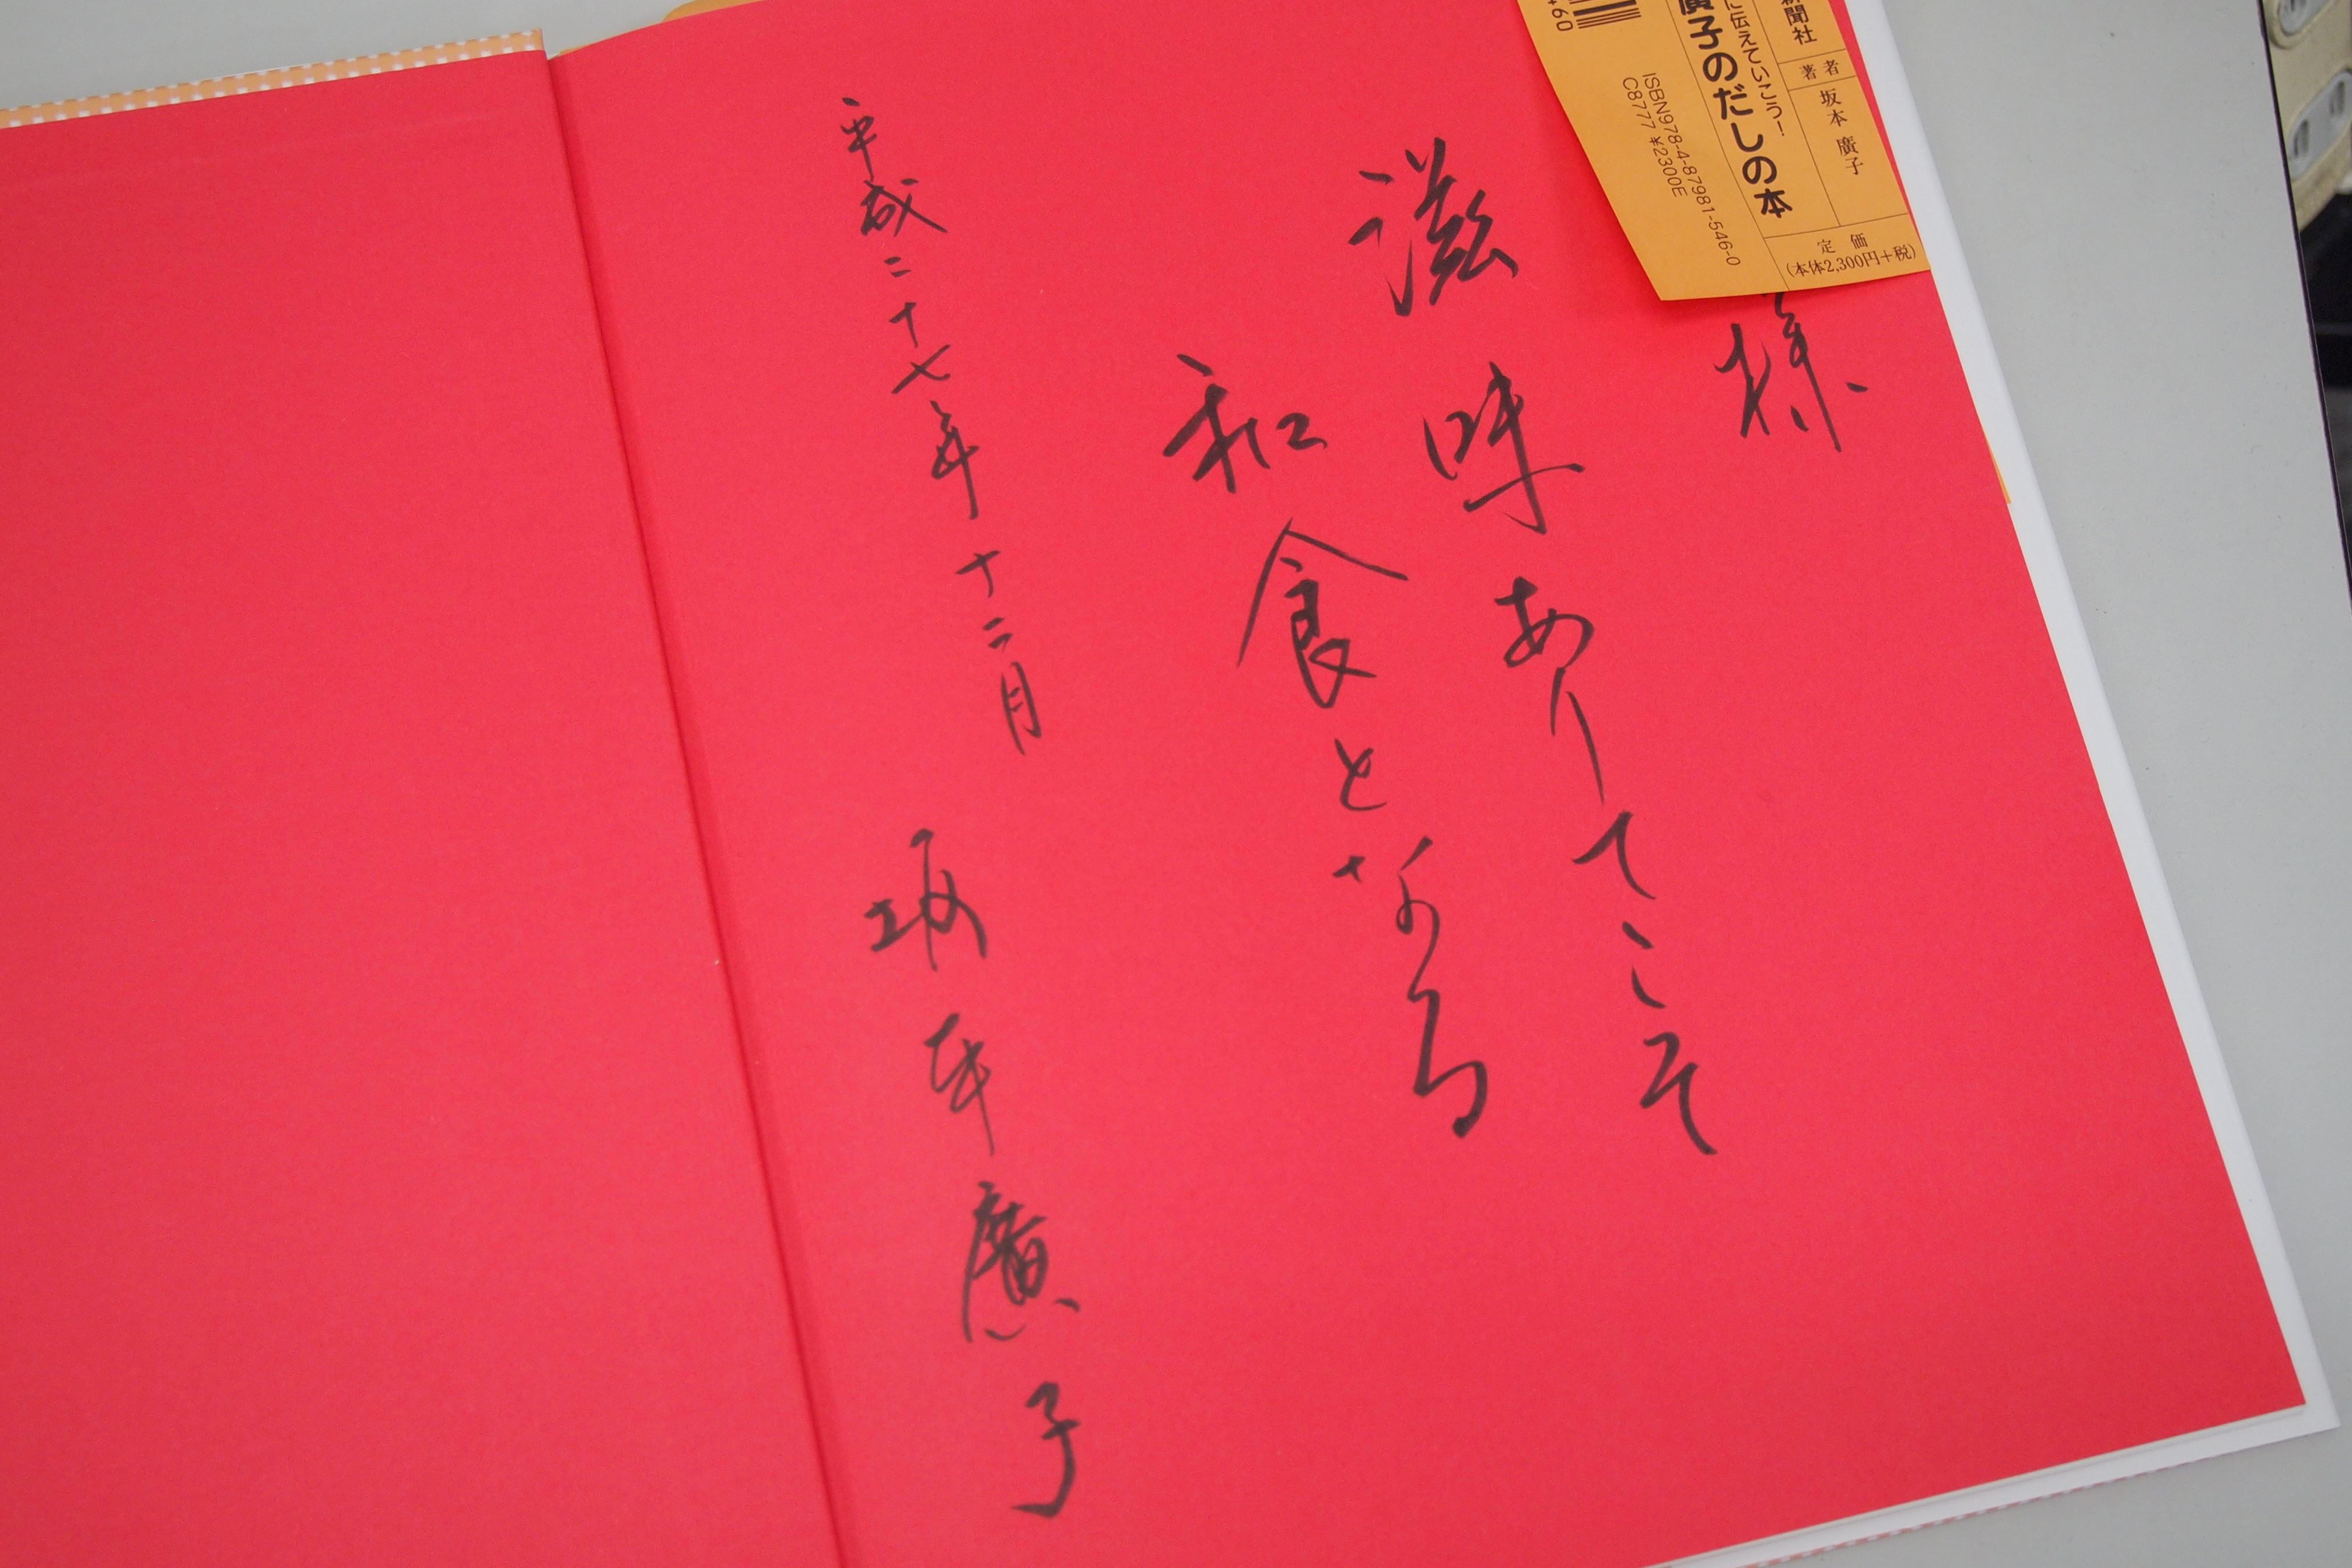 様
滋味ありてこそ
和食となる
平成二十七年十二月
坂本廣子
新聞社
著者
坂本 廣子
に伝えていこう!
廣子のだしの本
定価
(本体2,300円+税)
ISBN978-4-87981-546-0
C8777 ¥2300E
+60